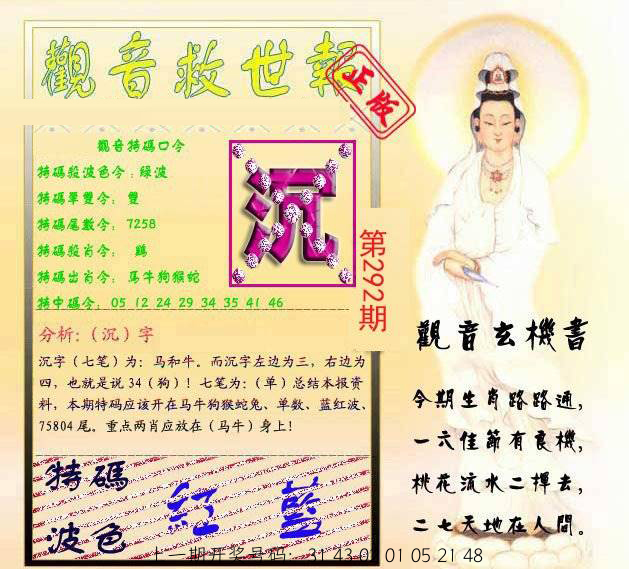 觀音救世報
正版
觀音特碼口令
特碼殺波色令：綠波
特碼單雙令： 雙
特碼尾數令： 7258
特碼殺肖令： 鷄
特碼出肖令： 馬牛狗猴蛇
特中碼令： 05 12 24 29 34 35 41 46
沉
第292期
分析:（沉）字
沉字（七笔）为：马和牛。而沉字左边为三，右边为
四，也就是说 34（狗）！七笔为：（单）总结本报资
料，本期特码应该开在马牛狗猴蛇兔、单数、蓝红波、
75804 尾。重点两肖应放在（马牛）身上！
特碼
波色
紅 藍
觀音玄機書
今期生肖路路通，
一六佳節有良機，
桃花流水二擇去，
二七天地在人間。
上一期开奖号码： 31 43 01 05 21 48